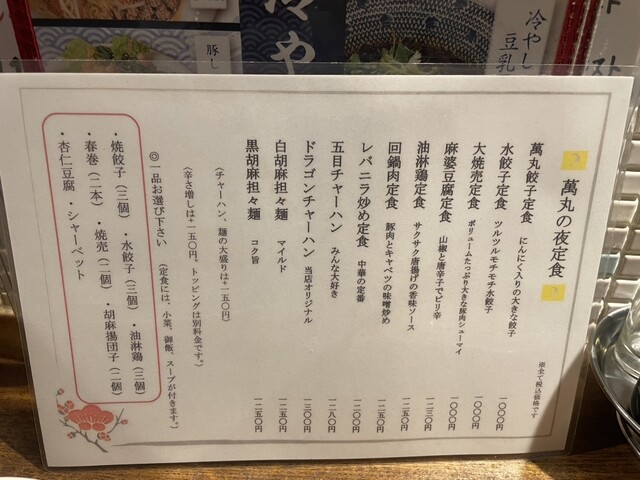 冷やし
豆乳
冷や
豚し
萬丸の夜定食
※全て税込価格です
萬丸餃子定食 にんにく入りの大きな餃子 一〇〇〇円
水餃子定食 ツルツルモチモチ水餃子 一〇〇〇円
大焼売定食 ボリュームたっぷり大きな豚肉シューマイ 一〇〇〇円
麻婆豆腐定食 山椒と唐辛子でピリ辛 一一〇〇円
油淋鶏定食 サクサク唐揚げの香味ソース 一二三〇円
回鍋肉定食 豚肉とキャベツの味噌炒め 一二五〇円
レバニラ炒め定食 中華の定番 一二〇〇円
五目チャーハン みんな大好き 一二八〇円
ドラゴンチャーハン 当店オリジナル 一三〇〇円
白胡麻担々麺 マイルド 一二五〇円
黒胡麻担々麺 コク旨 一二五〇円
(チャーハン、麺の大盛りは+一五〇円)
(辛さ増しは+一五〇円。トッピングは別料金です。)
◎一品お選び下さい (定食には、小菜、御飯、スープが付きます。)
・焼餃子(三個) ・水餃子(三個) ・油淋鶏(三個)
・春巻(二本) ・焼売(二個) ・胡麻揚団子(二個)
・杏仁豆腐 ・シャーベット